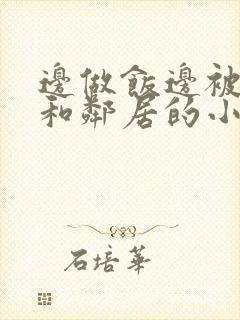 邊做飯邊被
和鄰居的小
石培華